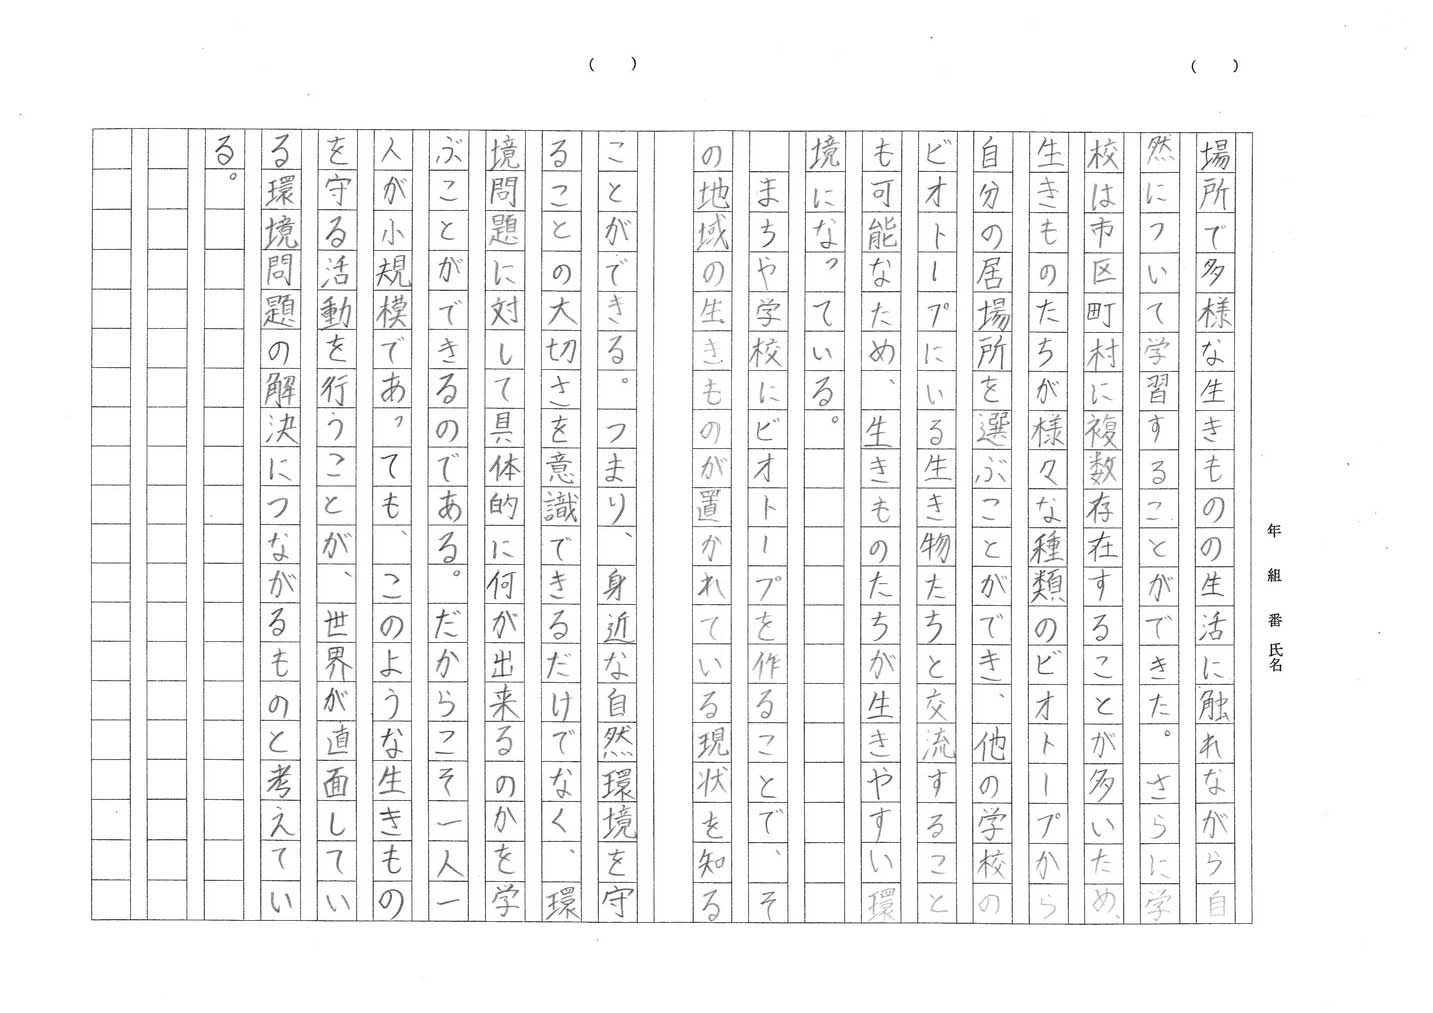 （　）
（　）
年　組　番　氏名
場所で多様な生きものの生活に触れながら自
然について学習することができた。さらに学
校は市区町村に複数存在することが多いため、
生きものたちが様々な種類のビオトープから
自分の居場所を選ぶことができ、他の学校の
ビオトープにいる生き物たちと交流すること
も可能なため、生きものたちが生きやすい環
境になっている。
　まちや学校にビオトープを作ることで、そ
の地域の生きものが置かれている現状を知る
ことができる。つまり、身近な自然環境を守
ることの大切さを意識できるだけでなく、環
境問題に対して具体的に何が出来るのかを学
ぶことができるのである。だからこそ一人一
人が小規模であっても、このような生きもの
を守る活動を行うことが、世界が直面してい
る環境問題の解決につながるものと考えてい
る。